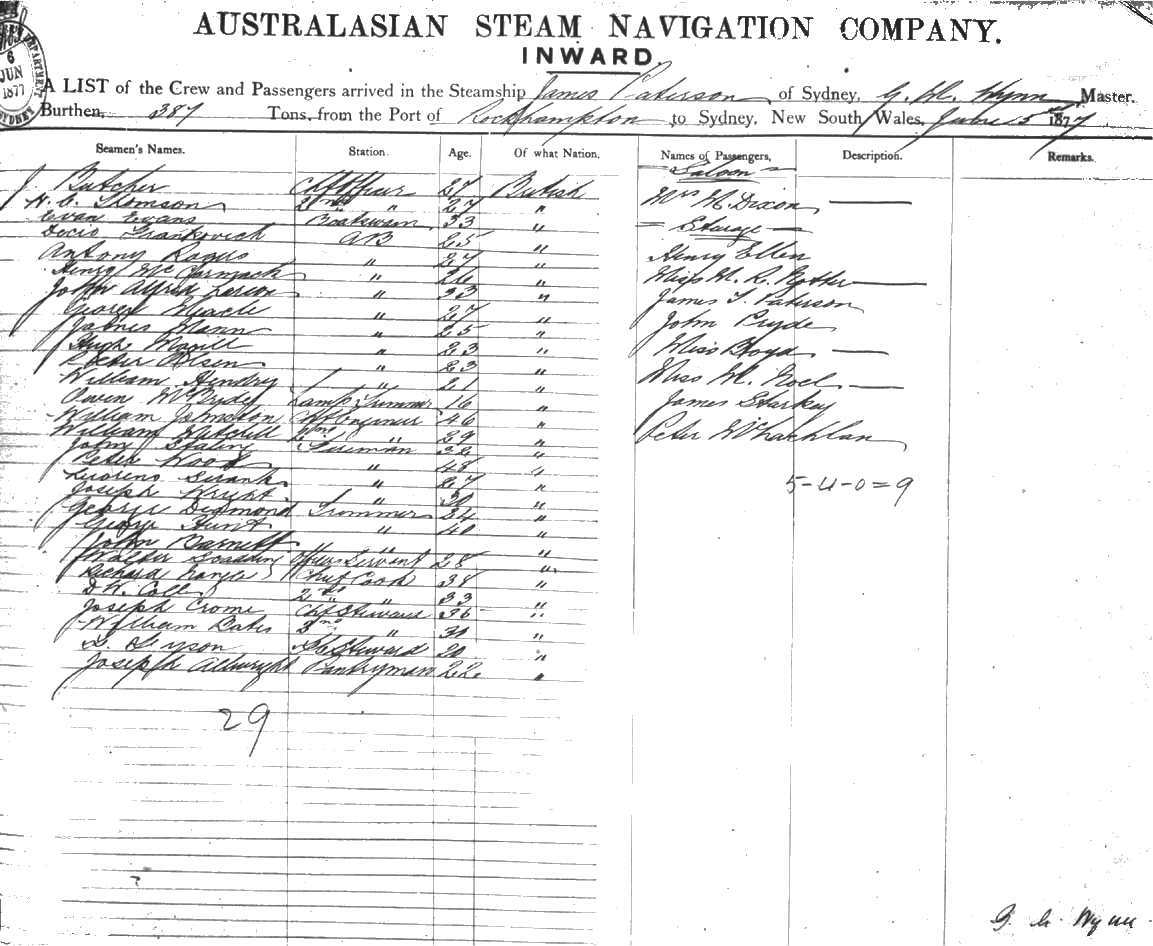 AUSTRALASIAN STEAM NAVIGATION COMPANY.
INWARD.
6
JUN
1877
SYDNEY
A LIST of the Crew and Passengers arrived in the Steamship James Paterson of Sydney, Master.
Burthen, 387 Tons, from the Port of Rockhampton to Sydney, New South Wales, June 5th 1877
Seamen's Names. Station. Age. Of what Nation, Names of Passengers, Description. Remarks.
J Butcher Chf Officer 27 British
H. C. Thomson 2nd " 27 "
Evan Evans Boatswain 33 "
Frankovich AB 25 "
Antony 27 "
Henry McCormack " 26 "
John Alfred " 33 "
George " 27 "
James Mann " 25 "
Hugh Magill " 23 "
Peter Olsen " 23 "
William Hendry " 21 "
Owen McBryde Lamp Trimmer 16 "
William Johnston Chf Engineer 46 "
William Mitchell 2nd " 29 "
John Fireman "
Peter Wood " 48 "
27 "
Joseph Wright " 30 "
George Desmond Trimmer 34 "
George Hunt " 40 "
John Barnett " "
Walter Officers Servant 28 "
Richard Chief Cook 38 "
D W. 2nd " 33 "
Joseph Crome Chf Steward 36 "
William Bates 2nd " 30 "
Steward 20 "
Joseph Allwright Pantryman 22 "
29
Saloon
Mrs H. Dixon
Steerage
Henry Ellen
Miss M. R.
James T. Paterson
John Pryde
Miss Boyd
Miss M. Noel
James Starkey
Peter McLachlan
5-4-0=9